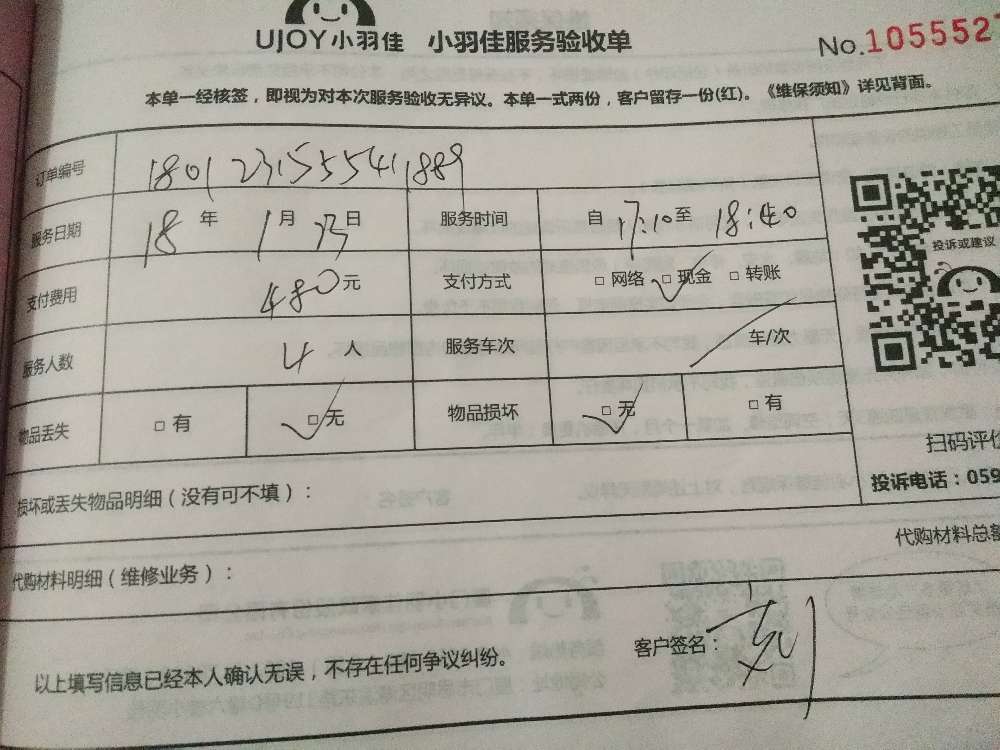 UJOY小羽佳 小羽佳服务验收单
No.105552
本单一经核签，即视为对本次服务验收无异议。本单一式两份，客户留存一份(红)。《维保须知》详见背面。
订单编号 180123155541889
服务日期 18 年 1 月 23 日 服务时间 自 17:10 至 18:40
支付费用 480 元 支付方式 □ 网络 □ 现金 □ 转账
服务人数 4 人 服务车次 车/次
物品丢失 □ 有 □ 无 物品损坏 □ 无 □ 有
投诉或建议
扫码评价
投诉电话：059
损坏或丢失物品明细（没有可不填）：
代购材料明细（维修业务）：
代购材料总额
以上填写信息已经本人确认无误，不存在任何争议纠纷。
客户签名：